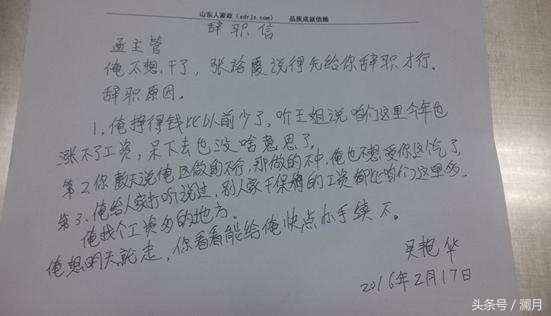 山东人家政（sdrjz.com） 品质成就信赖
辞职信
孟主管
俺不想干了，张裕霞说得先给你辞职才行。
辞职原因。
1、俺挣得钱比以前少了，听王姐说咱们这里今年也
涨不了工资，呆下去也没啥意思了，
第2你敲天说俺这做的不行，那做的不中，俺也不想受你这气了，
第3、俺给人家打听说过，别人家干保姆的工资都比咱们这里多。
俺找个工资多的地方。
俺想明天就走，你看看能给俺快点办手续不。
吴艳华
2016年2月17日
头条号／澜月